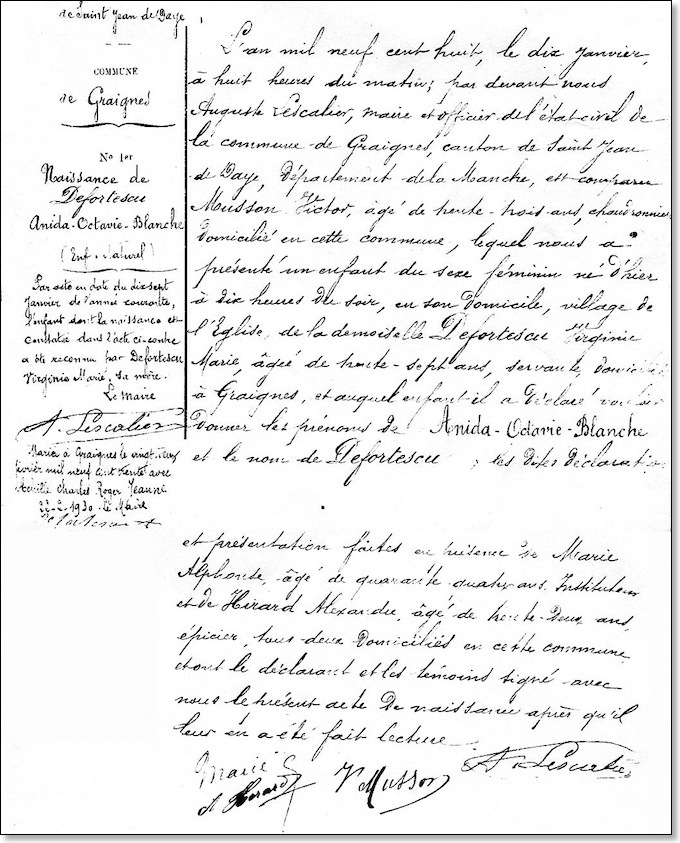 de Saint Jean de Daye
COMMUNE
de Graignes
No 1er
Naissance de
Defortescu
Anida-Octavie-Blanche
(Enf. Naturel)
Par acte en date du dix sept
janvier de l'année courante,
l'enfant dont la naissance est
constatée dans l'acte ci-contre
a été reconnu par Defortescu
Virginie Marie, sa mère.
Le Maire
A. Lescalier
Mariée à Graignes le vingt-deux
février mil neuf cent trente avec
Achille Charles Roger Jeanne
22-2-1930 le Maire
L'an mil neuf cent huit, le dix janvier,
à huit heures du matin; par devant nous
Auguste Lescalier, maire et officier de l'état-civil de
la commune de Graignes, canton de Saint Jean
de Daye, Département de la Manche, est comparu
Musson Victor, âgé de trente-trois ans, chaudronnier
domicilié en cette commune, lequel nous a
présenté un enfant du sexe féminin né d'hier
à dix heures du soir, en son domicile, village de
l'Eglise, de la demoiselle Defortescu Virginie
Marie, âgée de trente-sept ans, servante, domiciliée
à Graignes, et auquel enfant il a déclaré vouloir
donner les prénoms de Anida-Octavie-Blanche
et le nom de Defortescu; les dites déclaratio
et présentation faites en présence de Marie
Alphonse, âgé de quarante-quatre ans, Instituteur
et de Hérard Alexandre, âgé de trente-deux ans,
épicier, tous deux domiciliés en cette commune
et ont le déclarant et les témoins signé avec
nous le présent acte de naissance après qu'il
leur en a été fait lecture
Marie
A Herard
V Musson
A. Lescalier